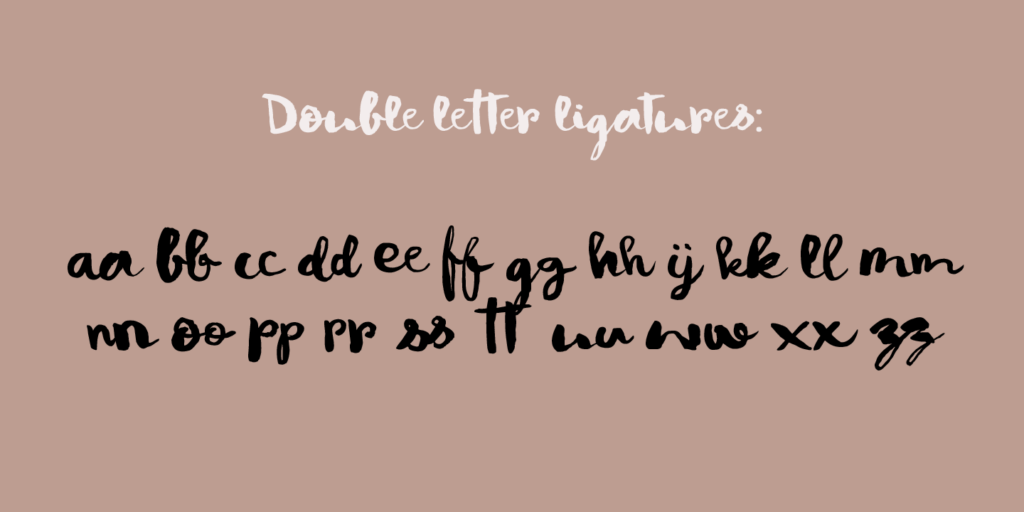 Double letter ligatures:
aa bb cc dd ee ff gg hh ij kk ll mm
nn oo pp rr ss tt uu ww xx zz